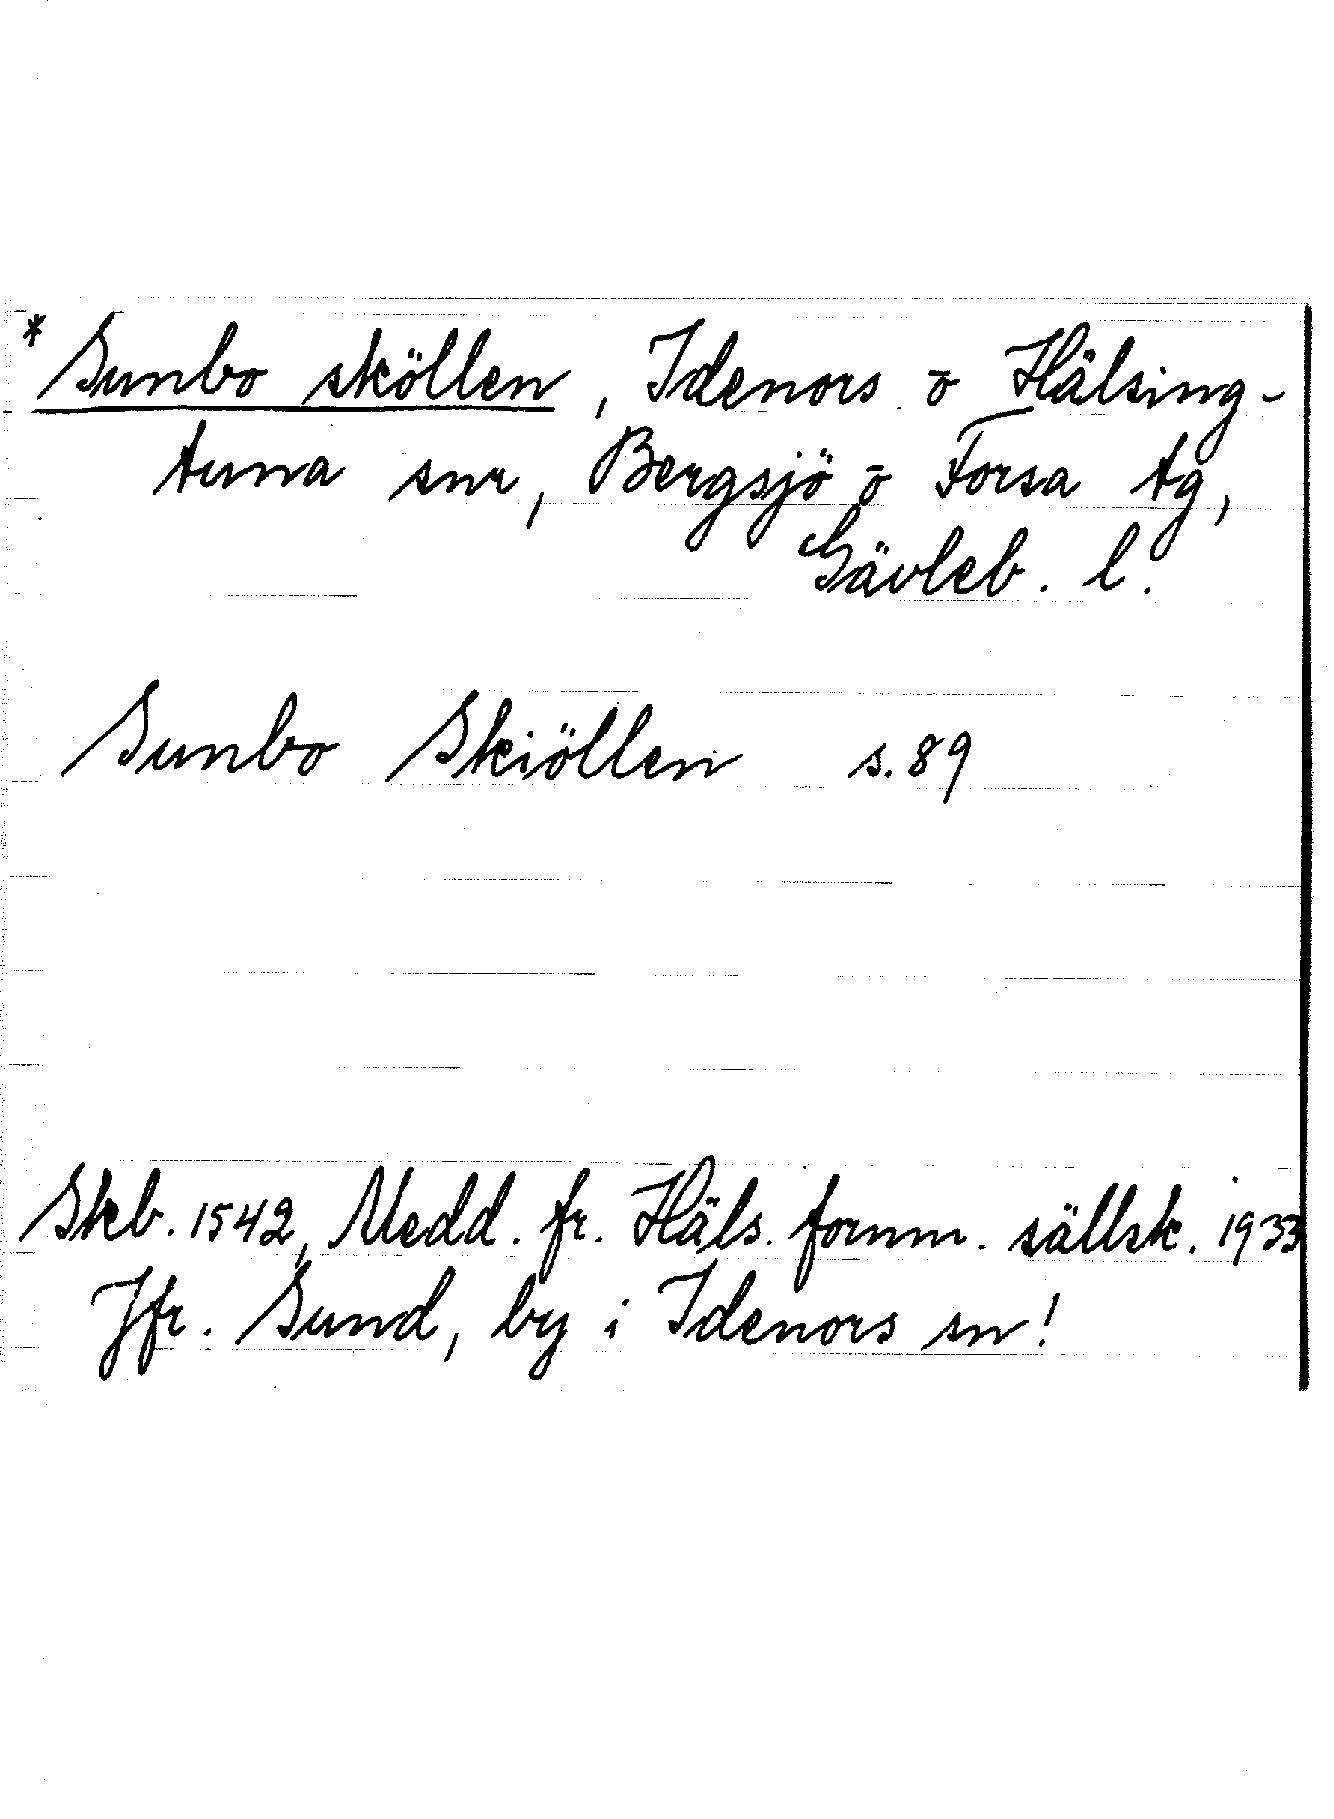 * Sunbo sköllen, Idenors o Hälsing-
tuna snr, Bergsjö o Forsa tg,
Gävleb. l.
Sunbo Skiöllen s. 89
Skb. 1542, Medd. fr. Häls. fornm. sällsk. 1933
Jfr. Sund, by i Idenors sn!